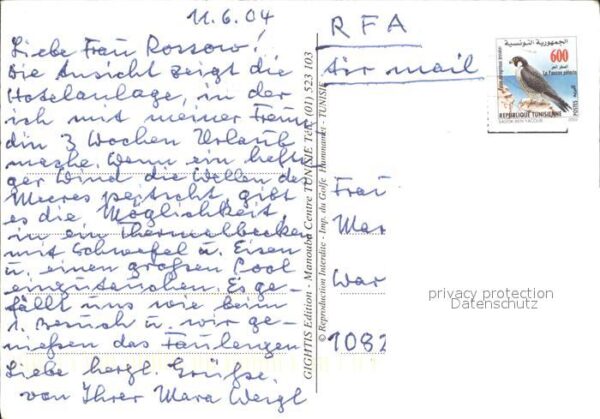 11.6.04
Liebe Frau Rossow!
Die Ansicht zeigt die
Hotelanlage, in der
ich mit meiner Freun
din 3 Wochen Urlaub
mache. Wenn ein hefti
ger Wind die Wellen des
Meeres peitscht, gibt
es die Möglichkeit,
in ein Thermalbecken
mit Schwefel u. Eisen
u. einen großen Pool
einzutauchen. Es ge-
fällt uns wie beim
1. Besuch u. wir ge-
nießen das Faulenzen
Liebe herzl. Grüße.
von Ihrer Mara Weigl
GIGHTIS Edition - Manouba Centre TUNISIE Tél. (01) 523 103
© Reproduction Interdite - Imp. du Golfe Hammamet - TUNISIE
RFA
Air mail
الجمهورية التونسية
600
Le Faucon pèlerin
REPUBLIQUE TUNISIENNE
Frau
Mar
War
1082
privacy protection
Datenschutz